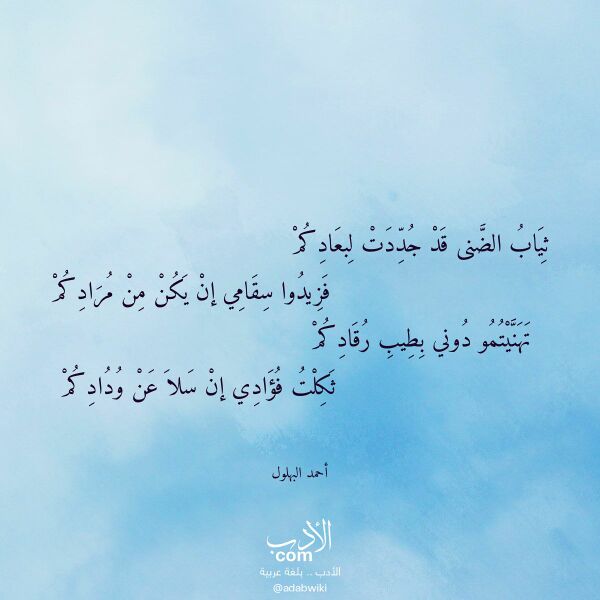 ثِيَابُ الضَّنى قَدْ جُدِّدَتْ لِبعَادِكُمْ
فَزِيدُوا سِقَامِي إنْ يَكُنْ مِنْ مُرَادِكُمْ
تَهَنَّيْتُمُو دُوني بِطِيبِ رُقَادِكُمْ
ثَكِلْتُ فُؤَادِي إنْ سَلاَ عَنْ وُدُادِكُمْ
أحمد البهلول
الأدب
com
الأدب .. بلغة عربية
@adabwiki